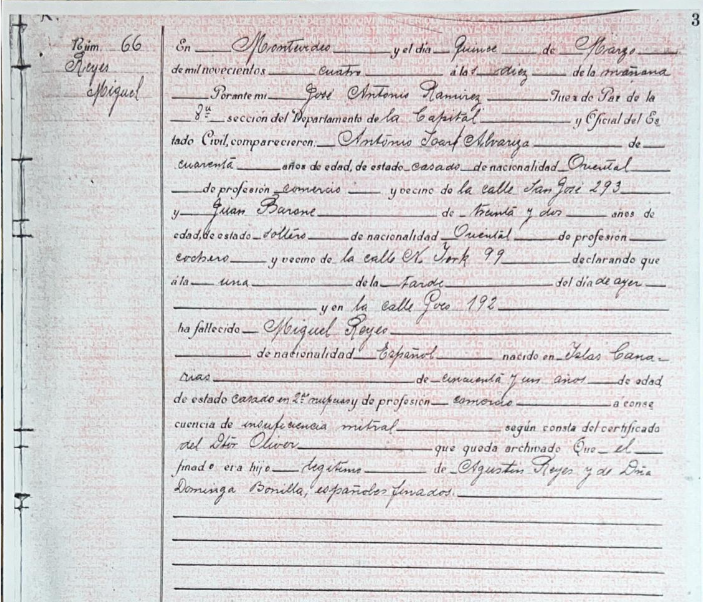 3
Núm. 66
Reyes
Miguel
En Montevideo y el día Quince de Marzo
de mil novecientos cuatro á las diez de la mañana
Por ante mi José Antonio Ramirez Juez de Paz de la
8ª sección del Departamento de la Capital y Oficial del Es
tado Civil, comparecieron: Antonio Alvariza de
cuarenta años de edad, de estado casado de nacionalidad Oriental
de profesión comercio y vecino de la calle San José 293
y Juan Barone de treinta y dos años de
edad, de estado soltero de nacionalidad Oriental de profesión
cochero y vecino de la calle N. York 99 declarando que
á la una de la tarde del día de ayer
y en la calle Goes 192
ha fallecido Miguel Reyes
de nacionalidad Español nacido en Islas Cana-
rias de cincuenta y un años de edad
de estado casado en 2as nupcias y de profesión á conse
cuencia de insuficiencia mitral según consta del certificado
del Dtor Oliver que queda archivado Que el
finado era hijo legítimo de Agustin Reyes y de Dña
Dominga Bonilla, españoles finados.